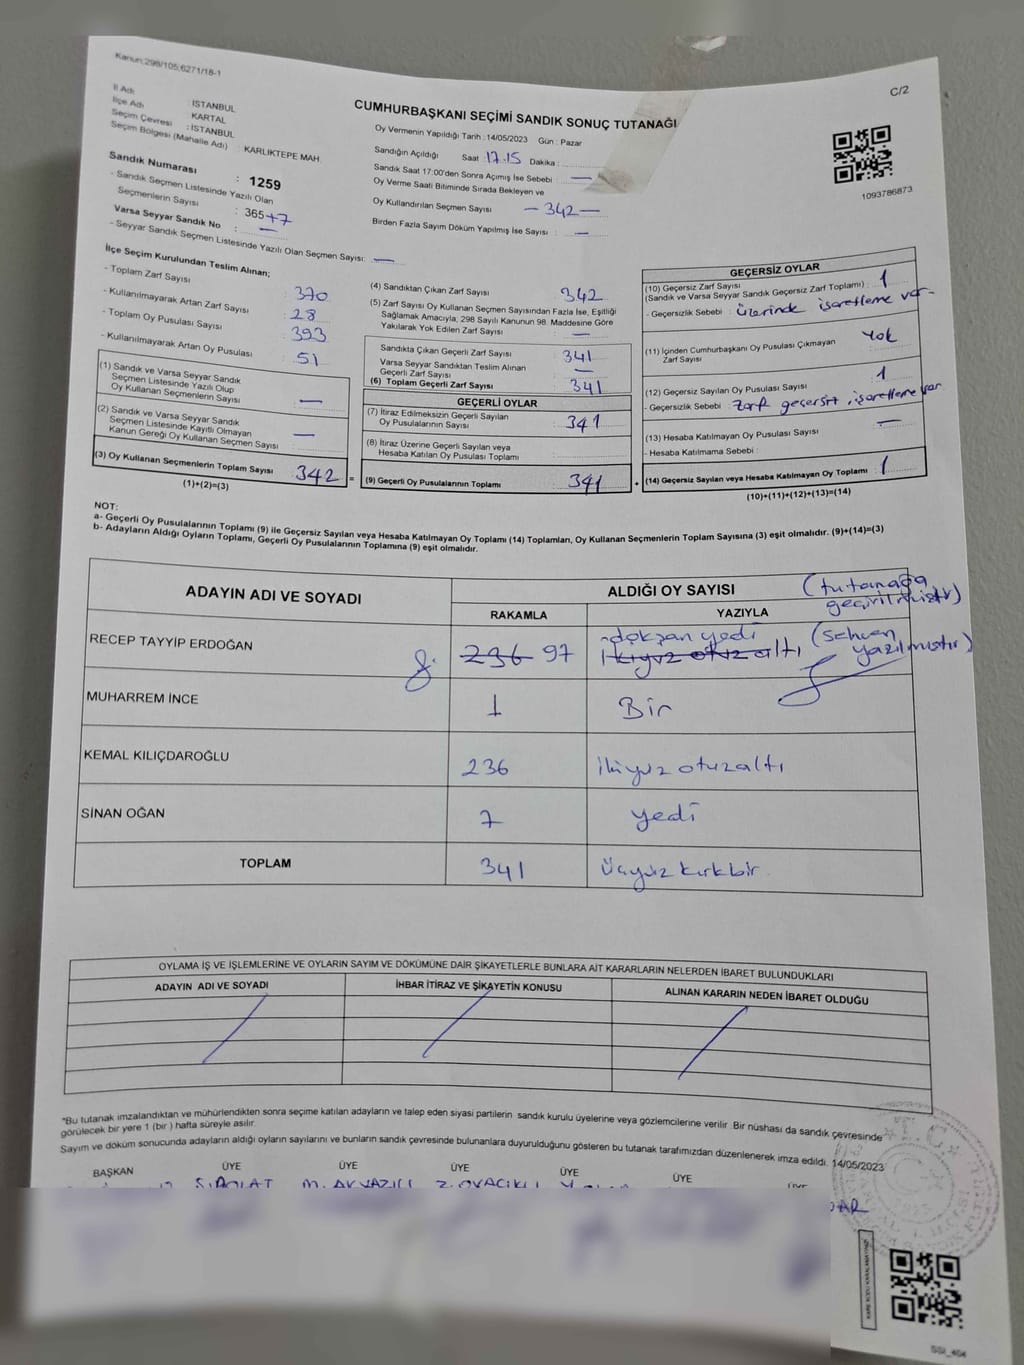 Kanun:298/105;6271/18-1
C/2
İl Adı : İSTANBUL
İlçe Adı KARTAL
Seçim Çevresi : İSTANBUL
Seçim Bölgesi (Mahalle Adı) KARLIKTEPE MAH.
CUMHURBAŞKANI SEÇİMİ SANDIK SONUÇ TUTANAĞI
Oy Vermenin Yapıldığı Tarih : 14/05/2023 Gün : Pazar
Sandığın Açıldığı Saat 17.15 Dakika :
Sandık Saat 17:00'den Sonra Açımış İse Sebebi —
Oy Verme Saati Bitiminde Sırada Bekleyen ve
Oy Kullandırılan Seçmen Sayısı — 342 —
Birden Fazla Sayım Döküm Yapılmış İse Sayısı : —
1093786873
Sandık Numarası : 1259
- Sandık Seçmen Listesinde Yazılı Olan
Seçmenlerin Sayısı : 365+7
Varsa Seyyar Sandık No : —
- Seyyar Sandık Seçmen Listesinde Yazılı Olan Seçmen Sayısı: —
İlçe Seçim Kurulundan Teslim Alınan;
- Toplam Zarf Sayısı 370
- Kullanılmayarak Artan Zarf Sayısı 28
- Toplam Oy Pusulası Sayısı 393
- Kullanılmayarak Artan Oy Pusulası 51
(1) Sandık ve Varsa Seyyar Sandık
Seçmen Listesinde Yazılı Olup
Oy Kullanan Seçmenlerin Sayısı —
(2) Sandık ve Varsa Seyyar Sandık
Seçmen Listesinde Kayıtlı Olmayan
Kanun Gereği Oy Kullanan Seçmen Sayısı —
(3) Oy Kullanan Seçmenlerin Toplam Sayısı 342 =
(1)+(2)=(3)
(4) Sandıktan Çıkan Zarf Sayısı 342
(5) Zarf Sayısı Oy Kullanan Seçmen Sayısından Fazla İse, Eşitliği
Sağlamak Amacıyla; 298 Sayılı Kanunun 98. Maddesine Göre
Yakılarak Yok Edilen Zarf Sayısı : —
Sandıkta Çıkan Geçerli Zarf Sayısı 341
Varsa Seyyar Sandıktan Teslim Alınan
Geçerli Zarf Sayısı —
(6) Toplam Geçerli Zarf Sayısı 341
GEÇERLİ OYLAR
(7) İtiraz Edilmeksizin Geçerli Sayılan
Oy Pusulalarının Sayısı 341
(8) İtiraz Üzerine Geçerli Sayılan veya
Hesaba Katılan Oy Pusulası Toplamı
(9) Geçerli Oy Pusulalarının Toplamı 341 +
GEÇERSİZ OYLAR
(10) Geçersiz Zarf Sayısı 1
(Sandık ve Varsa Seyyar Sandık Geçersiz Zarf Toplamı) :
- Geçersizlik Sebebi : üzerinde işaretleme var-
(11) İçinden Cumhurbaşkanı Oy Pusulası Çıkmayan
Zarf Sayısı Yok
(12) Geçersiz Sayılan Oy Pusulası Sayısı 1
- Geçersizlik Sebebi zarf geçersiz, işaretleme var
(13) Hesaba Katılmayan Oy Pusulası Sayısı —
- Hesaba Katılmama Sebebi :
(14) Geçersiz Sayılan veya Hesaba Katılmayan Oy Toplamı 1
(10)+(11)+(12)+(13)=(14)
NOT:
a- Geçerli Oy Pusulalarının Toplamı (9) ile Geçersiz Sayılan veya Hesaba Katılmayan Oy Toplamı (14) Toplamları, Oy Kullanan Seçmenlerin Toplam Sayısına (3) eşit olmalıdır. (9)+(14)=(3)
b- Adayların Aldığı Oyların Toplamı, Geçerli Oy Pusulalarının Toplamına (9) eşit olmalıdır.
ADAYIN ADI VE SOYADI
ALDIĞI OY SAYISI
RAKAMLA YAZIYLA
(tutanağa geçirilmiştir)
RECEP TAYYİP ERDOĞAN 236 97 doksan yedi ikiyüz otuz altı (sehven yazılmıştır)
MUHARREM İNCE 1 Bir
KEMAL KILIÇDAROĞLU 236 ikiyüz otuzaltı
SİNAN OĞAN 7 yedi
TOPLAM 341 Üçyüz kırkbir
OYLAMA İŞ VE İŞLEMLERİNE VE OYLARIN SAYIM VE DÖKÜMÜNE DAİR ŞİKAYETLERLE BUNLARA AİT KARARLARIN NELERDEN İBARET BULUNDUKLARI
ADAYIN ADI VE SOYADI İHBAR İTİRAZ VE ŞİKAYETİN KONUSU ALINAN KARARIN NEDEN İBARET OLDUĞU
*Bu tutanak imzalandıktan ve mühürlendikten sonra seçime katılan adayların ve talep eden siyasi partilerin sandık kurulu üyelerine veya gözlemcilerine verilir. Bir nüshası da sandık çevresinde
görülecek bir yere 1 (bir ) hafta süreyle asılır.
Sayım ve döküm sonucunda adayların aldığı oyların sayılarını ve bunların sandık çevresinde bulunanlara duyurulduğunu gösteren bu tutanak tarafımızdan düzenlenerek imza edildi. 14/05/2023
BAŞKAN ÜYE ÜYE ÜYE ÜYE ÜYE ÜYE